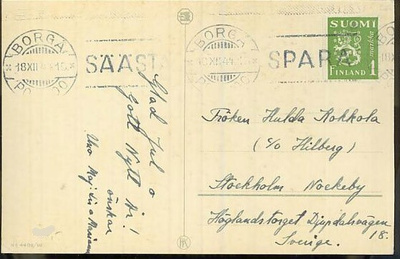 BORGÅ
18.XII.
SÄÄST
SPARA
SUOMI
markka
FINLAND 1
Glad Jul o
Gott Nytt År!
önskar
Fröken Hulda Kokkola
(c/o Hilberg)
Stockholm Nockeby
Höglandstorget Djupdalsvägen
18.
Sverige.